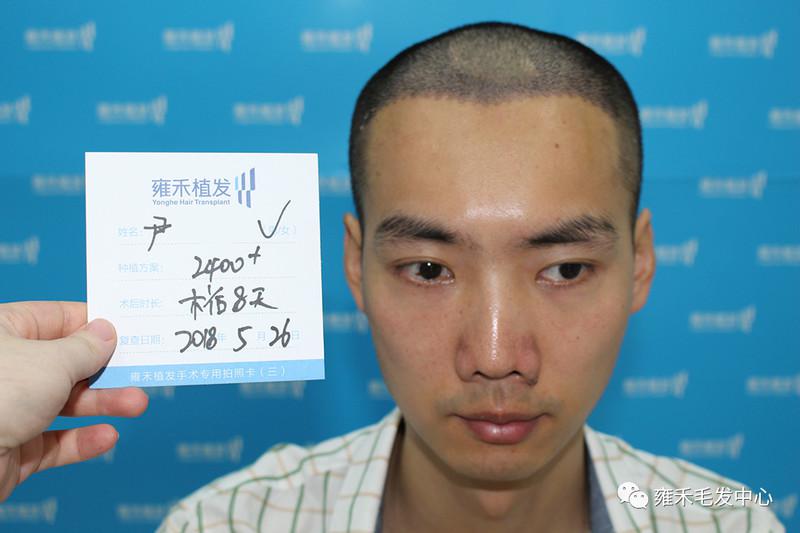 雍禾植发
Yonghe Hair Transplant
姓名: 尹 (男/女)
种植方案: 2400+
术后时长: 术后8天
复查日期: 2018年5月26日
雍禾植发手术专用拍照卡(三)
雍禾毛发中心